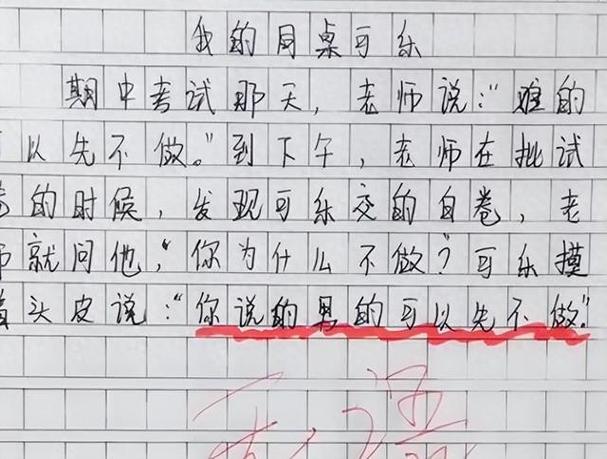 我的同桌可乐
期中考试那天，老师说：“难的
以先不做。”到下午，老师在批试
卷的时候，发现可乐交的白卷，老
师就问他，“你为什么不做？可乐摸
着头皮说：“你说的男的可以先不做。”